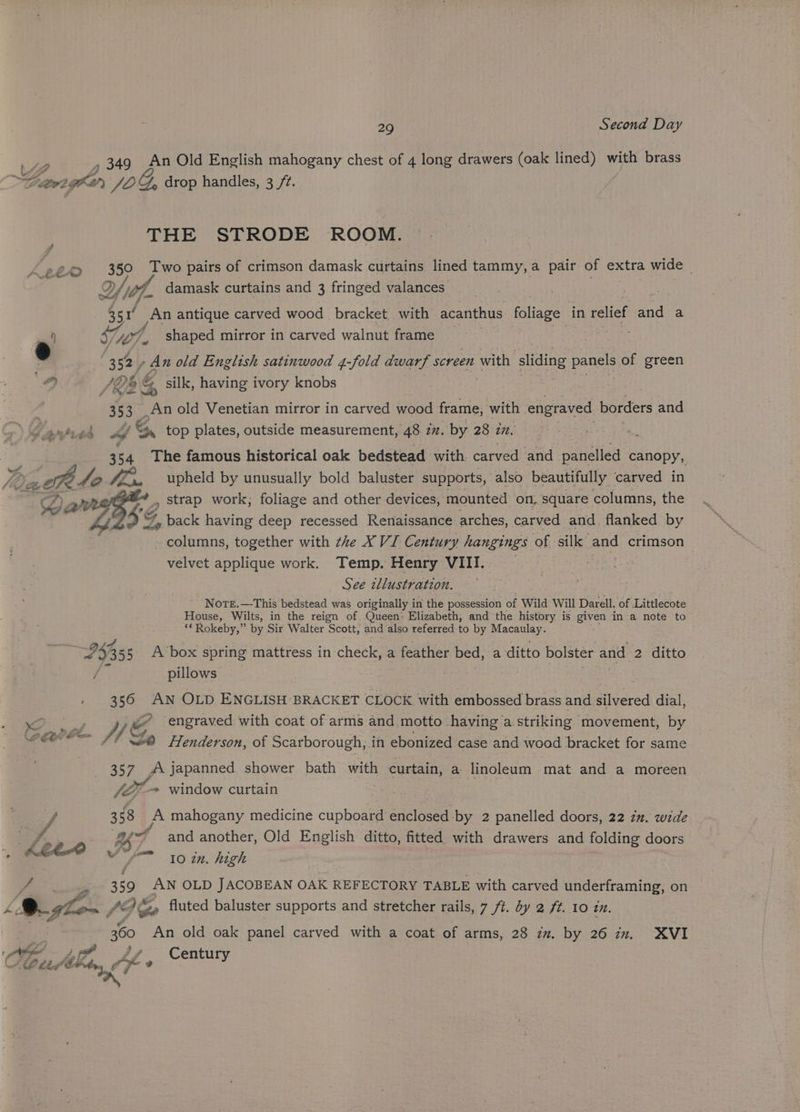 29 Second Day
349 An Old English mahogany chest of 4 long drawers (oak lined) with brass
drop handles, 3 ft.
THE STRODE ROOM.
350 Two pairs of crimson damask curtains lined tammy, a pair of extra wide
damask curtains and 3 fringed valances
351 An antique carved wood bracket with acanthus foliage in relief and a
shaped mirror in carved walnut frame
352 An old English satinwood 4-fold dwarf screen with sliding panels of green
silk, having ivory knobs
353 An old Venetian mirror in carved wood frame, with engraved borders and
top plates, outside measurement, 48 in. by 28 in.
354 The famous historical oak bedstead with carved and panelled canopy,
upheld by unusually bold baluster supports, also beautifully carved in
strap work, foliage and other devices, mounted on square columns, the
back having deep recessed Renaissance arches, carved and flanked by
columns, together with the XVI Century hangings of silk and crimson
velvet applique work. Temp. Henry VIII.
See illustration.
NOTE.—This bedstead was originally in the possession of Wild Will Darell, of Littlecote
House, Wilts, in the reign of Queen Elizabeth, and the history is given in a note to
“Rokeby,” by Sir Walter Scott, and also referred to by Macaulay.
355 A box spring mattress in check, a feather bed, a ditto bolster and 2 ditto
pillows
356 AN OLD ENGLISH BRACKET CLOCK with embossed brass and silvered dial,
engraved with coat of arms and motto having a striking movement, by
Henderson, of Scarborough, in ebonized case and wood bracket for same
357 A japanned shower bath with curtain, a linoleum mat and a moreen
window curtain
358 A mahogany medicine cupboard enclosed by 2 panelled doors, 22 in. wide
and another, Old English ditto, fitted with drawers and folding doors
10 in. high
359 AN OLD JACOBEAN OAK REFECTORY TABLE with carved underframing, on
fluted baluster supports and stretcher rails, 7 ft. by 2 ft. 10 in.
360 An old oak panel carved with a coat of arms, 28 in. by 26 in. XVI
Century